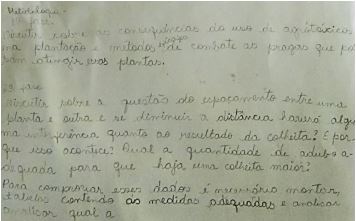 Metodologia -
1ª fase:
Discutir sobre as consequências do uso de agrotóxicos
na plantação e métodos de combate as pragas que po
sam atingir essas plantas.
2ª fase
Discutir sobre a questão do espaçamento entre uma
planta e outra e se diminuir a distância haverá algu
ma interferência quanto ao resultado da colheita? E por
que isso acontece? Qual a quantidade de adubo a-
dequada para que haja uma colheita maior?
Para comprovar esses dados é necessário montar
tabelas contendo as medidas adequadas e analisar
analisar qual a